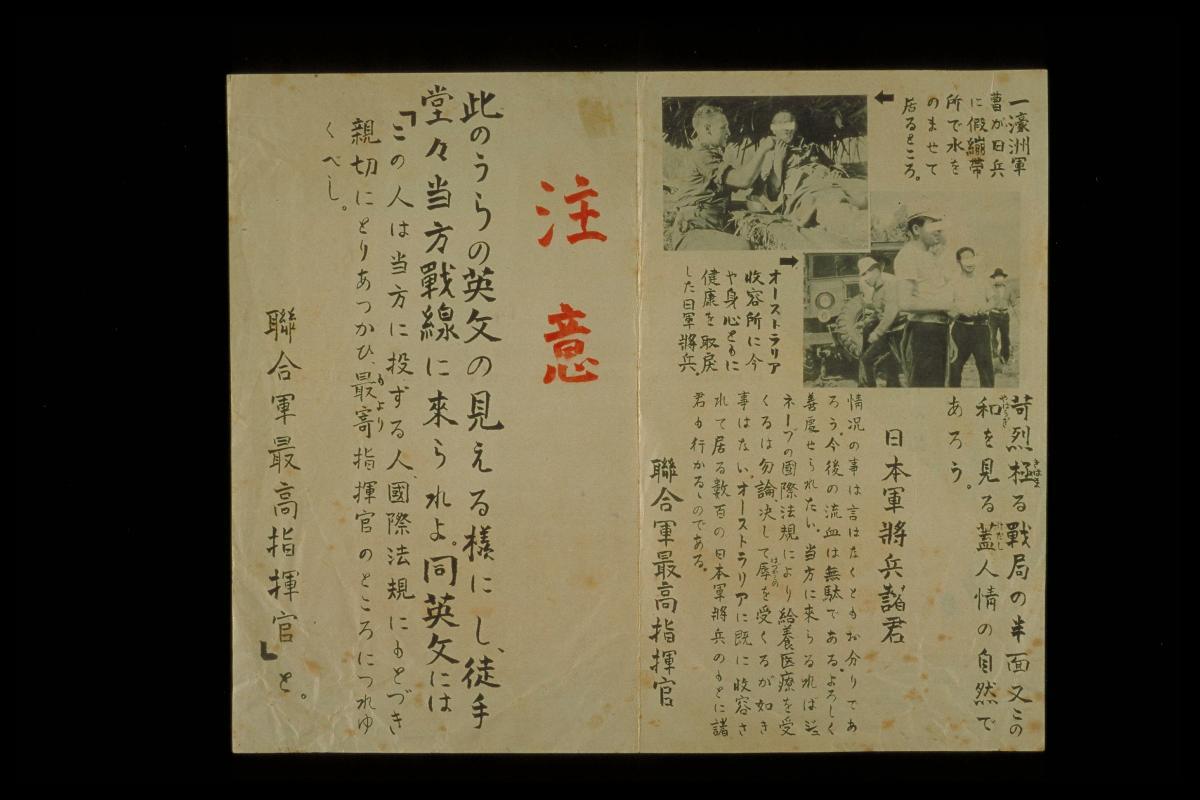 一濠洲軍
曹が日兵
に假繃帶
所で水を
のませて
居るところ。
オーストラリア
收容所に今
や身心ともに
健康を取戾
した日軍將兵。
苛烈極る戰局の半面又この
和を見る蓋人情の自然で
あろう。
日本軍將兵諸君
情況の事は言はなくともお分りであ
ろう。今後の流血は無駄である。よろしく
善處せられたい。当方に來らるればジュ
ネーブの國際法規により給養医療を受
くるは勿論、決して辱を受くるが如き
事はない。オーストラリアに既に收容さ
れて居る数百の日本軍將兵のもとに諸
君も行かるゝのである。
聯合軍最高指揮官
注意
此のうらの英文の見える樣にし、徒手
堂々当方戰線に來られよ。同英文には
「この人は当方に投ずる人、國際法規にもとづき
親切にとりあつかひ、最寄指揮官のところにつれゆ
くべし。
聯合軍最高指揮官」と。